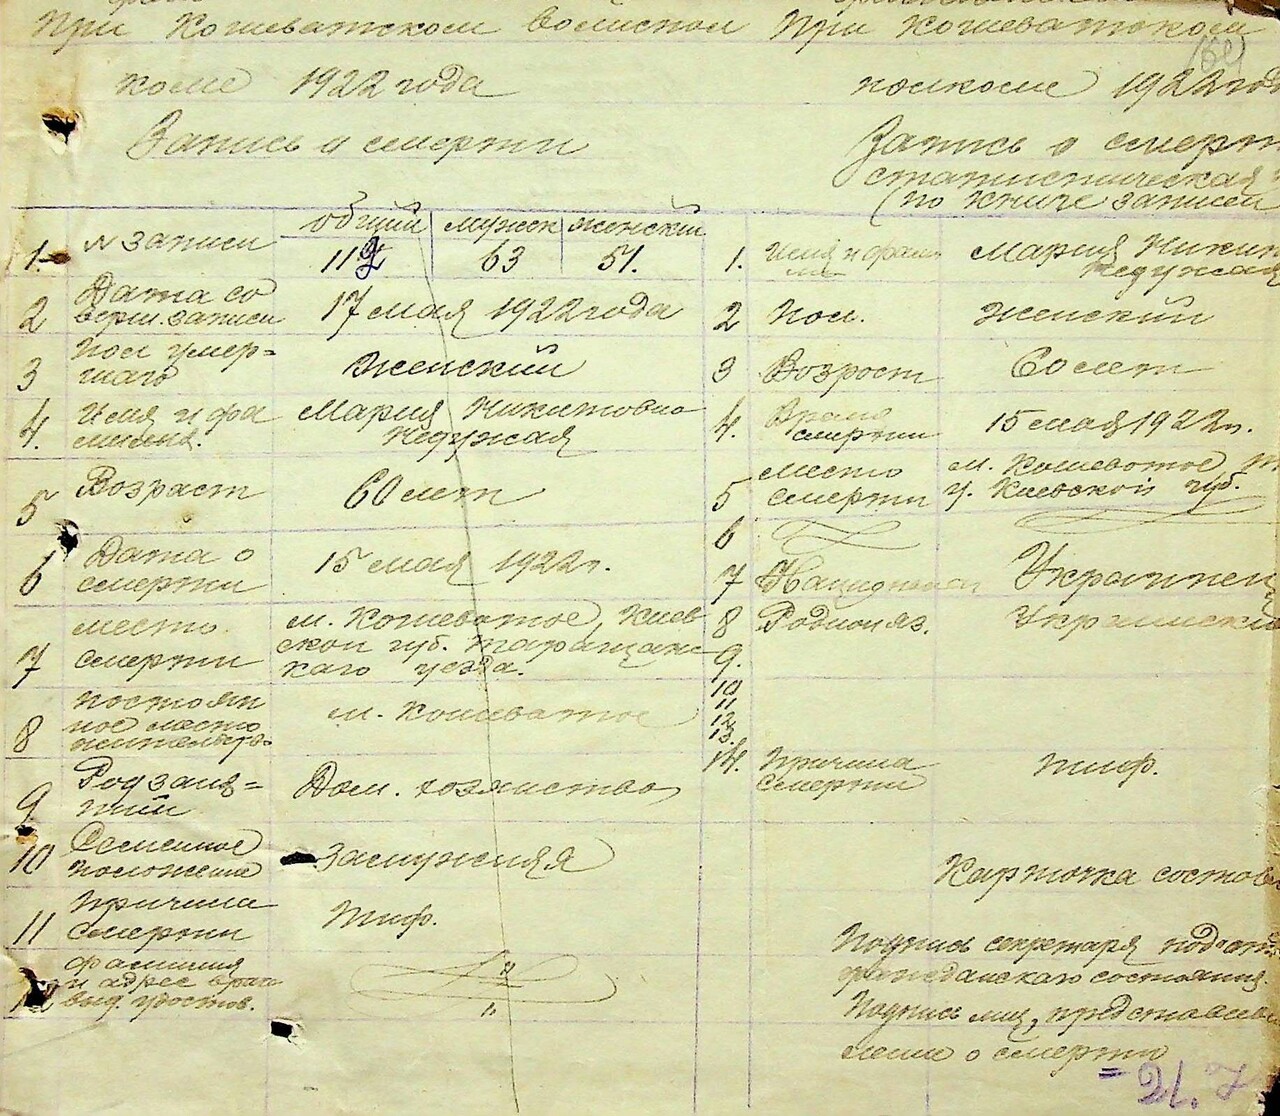 При Кошеватском Волиспол
коме 1922 года
Запись о смерти
общий мужск женский
1. № записи 112 63 51.
2 Дата со
верш. записи 17 мая 1922 года
3 Пол умер-
шаго Женский
4. Имя и фа
милия. Мария Никитовна
Недужая
5 Возраст 60 лет
6 Дата о
смерти 15 мая 1922 г.
7 место
смерти м. Кошеватое, Киев
ской губ. Таращанс
каго уезда.
8 постоян
ное место
жительства м. Кошеватое
9 Род заня-
тий Дом. хозяйство
10 Семейное
положение замужняя
11 Причина
смерти Тиф.
12 фамилия
и адрес врач
выд. удостов.
При Кошеватском
(69)
полкоме 1922 год
Запись о смерт
статистическая
(по книге записей
1. Имя и фами
лия Мария Никит
Недужая
2 Пол. Женский
3 Возрост 60 лет
4. Время
смерти 15 мая 1922 г.
5 место
смерти м. Кошеватое Т
у. Киевской губ.
6
7 Национальн Украинец
8 Родной яз. Украинский
9.
10
11
12
13.
14. Причина
смерти тиф.
Карточка состав
Подпись секретаря под от
гражданскаго состояния.
Подпись лиц, представив
ления о смерти
= 21. 7